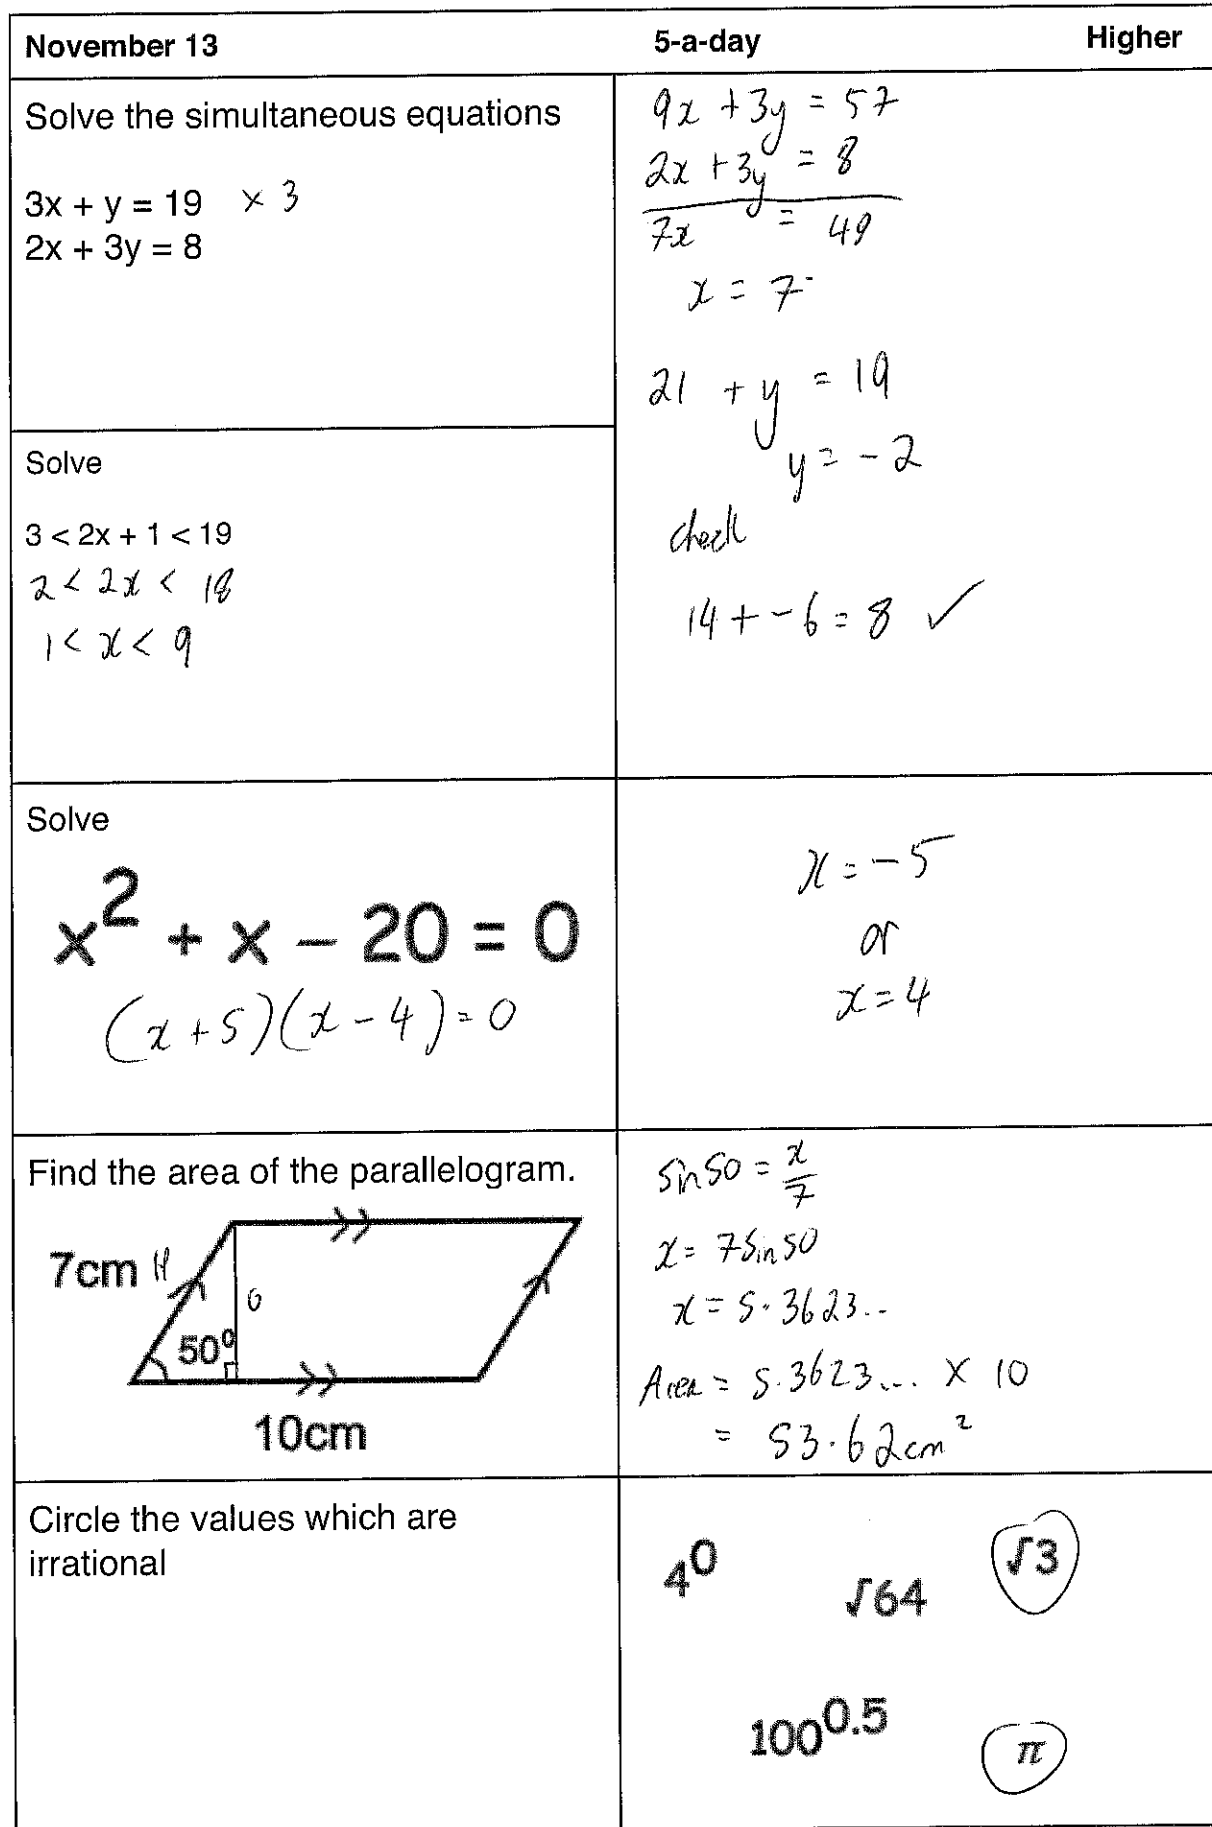 November 13 5-a-day Higher
Solve the simultaneous equations
3x + y = 19 × 3
2x + 3y = 8
9x + 3y = 57
2x + 3y = 8
7x = 49
x = 7
21 + y = 19
y = -2
check
14 + -6 = 8 ✓
Solve
3 < 2x + 1 < 19
2 < 2x < 18
1 < x < 9
Solve
x² + x – 20 = 0
(x + 5)(x - 4) = 0
x = -5
or
x = 4
Find the area of the parallelogram.
7cm H
O
50°
10cm
Sin 50 = x/7
x = 7Sin 50
x = 5.3623..
Area = 5.3623... × 10
= 53.62cm²
Circle the values which are
irrational
4⁰ √64 √3
100⁰·⁵ π